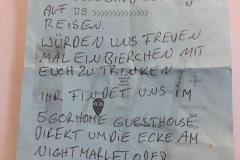 AUF
REISEN.
WÜRDEN UNS FREUEN
MAL EIN BIERCHEN MIT
EUCH ZU TRINKEN
IHR FINDET UNS IM
5 GORHOME GUESTHOUSE
DIREKT UM DIE ECKE AM
NIGHTMARKET ODER